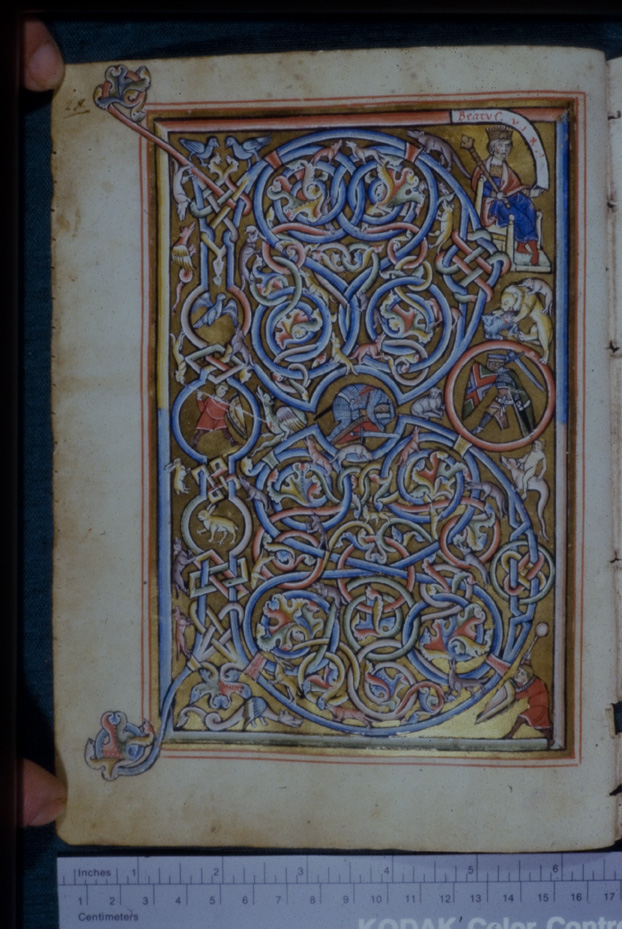 Beatus vir
Inches 1 2 3 4 5 6
1 2 3 4 5 6 7 8 9 10 11 12 13 14 15 16 17
Centimeters
KODAK Color Contro